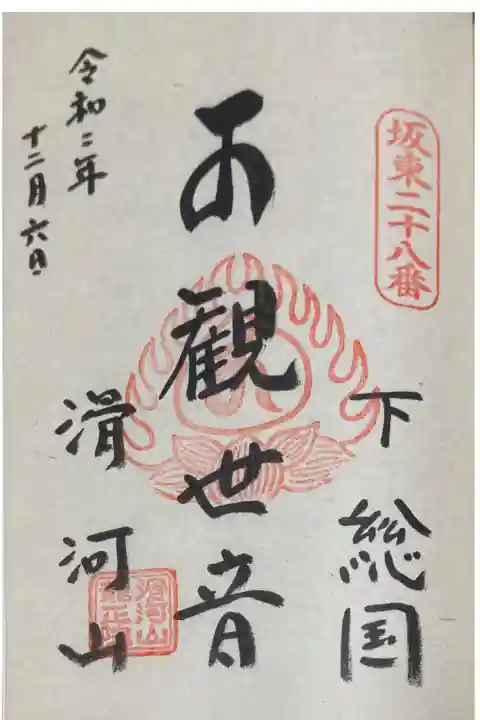 坂東二十八番
下総国
観世音
滑河山
令和二年
十二月六日
滑河山
龍正院